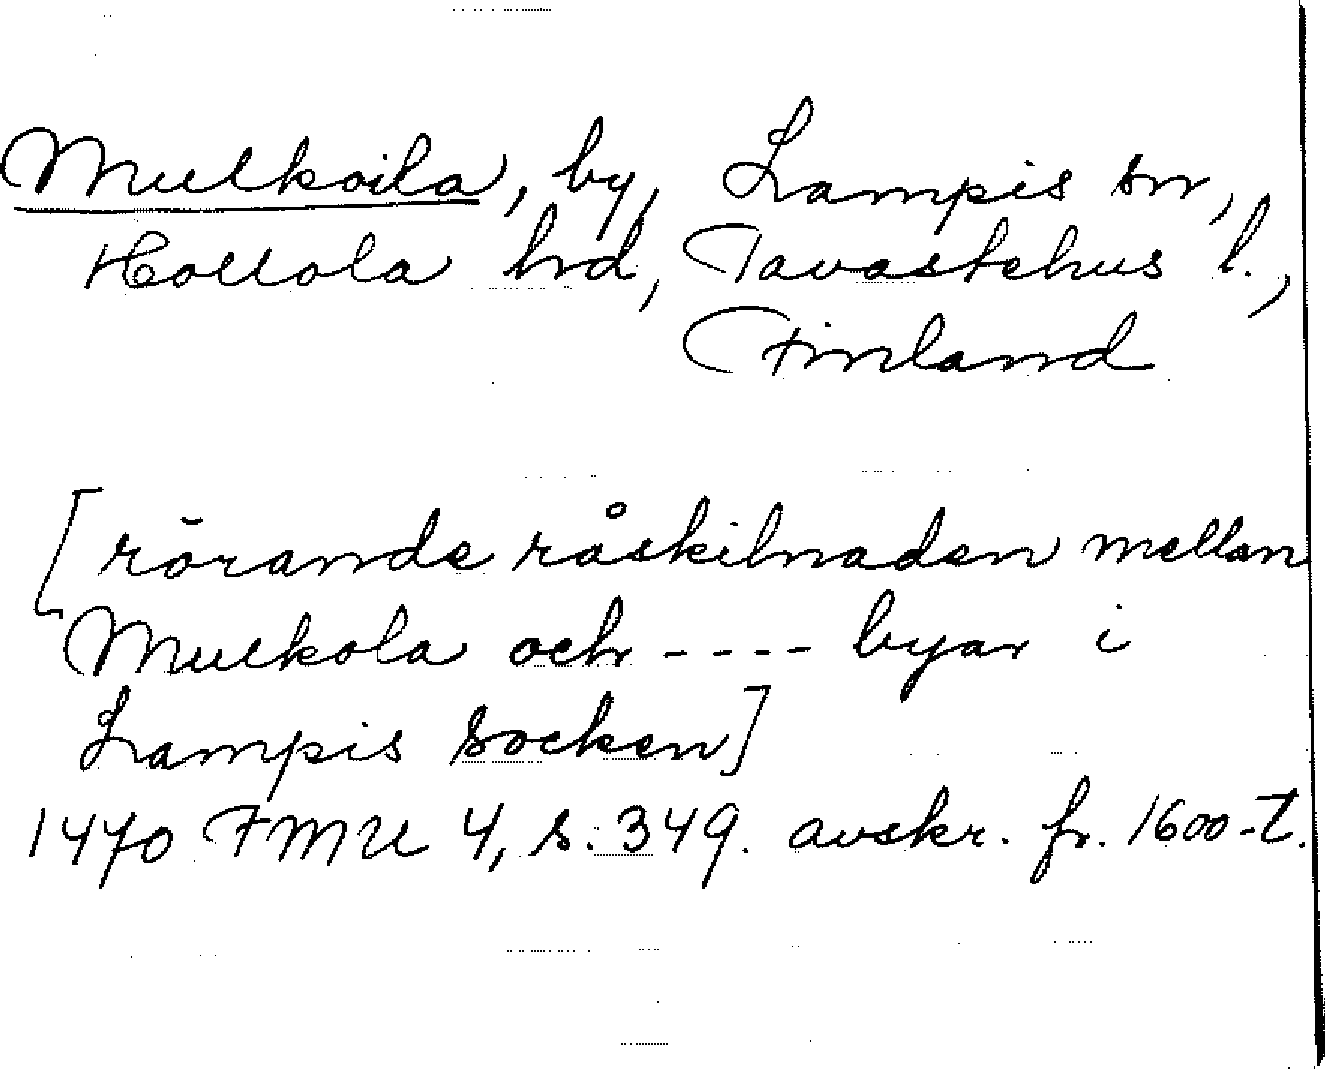 Mulkoila, by, Lampis sn,
Hollola hrd, Tavastehus l.,
Finland
[rörande råskilnaden mellan
Mulkola och ---- byar i
Lampis socken]
1470 FMU 4, s. 349. avskr. fr. 1600-t.